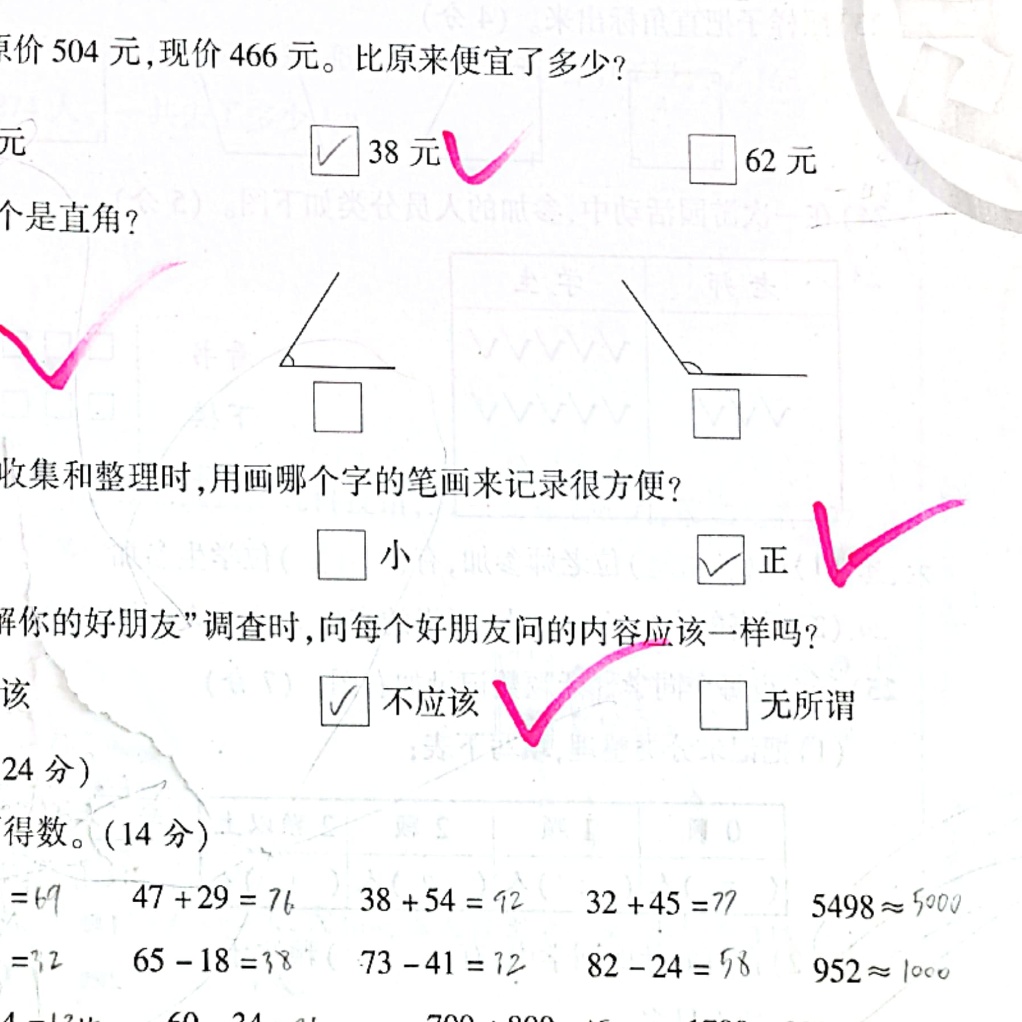 原价504元,现价466元。比原来便宜了多少?
元 38元 62元
个是直角?
收集和整理时,用画哪个字的笔画来记录很方便?
小 正
解你的好朋友”调查时,向每个好朋友问的内容应该一样吗?
该 不应该 无所谓
24分)
得数。(14分)
=69 47+29=76 38+54=92 32+45=77 5498≈5000
=32 65-18=38 73-41=32 82-24=58 952≈1000